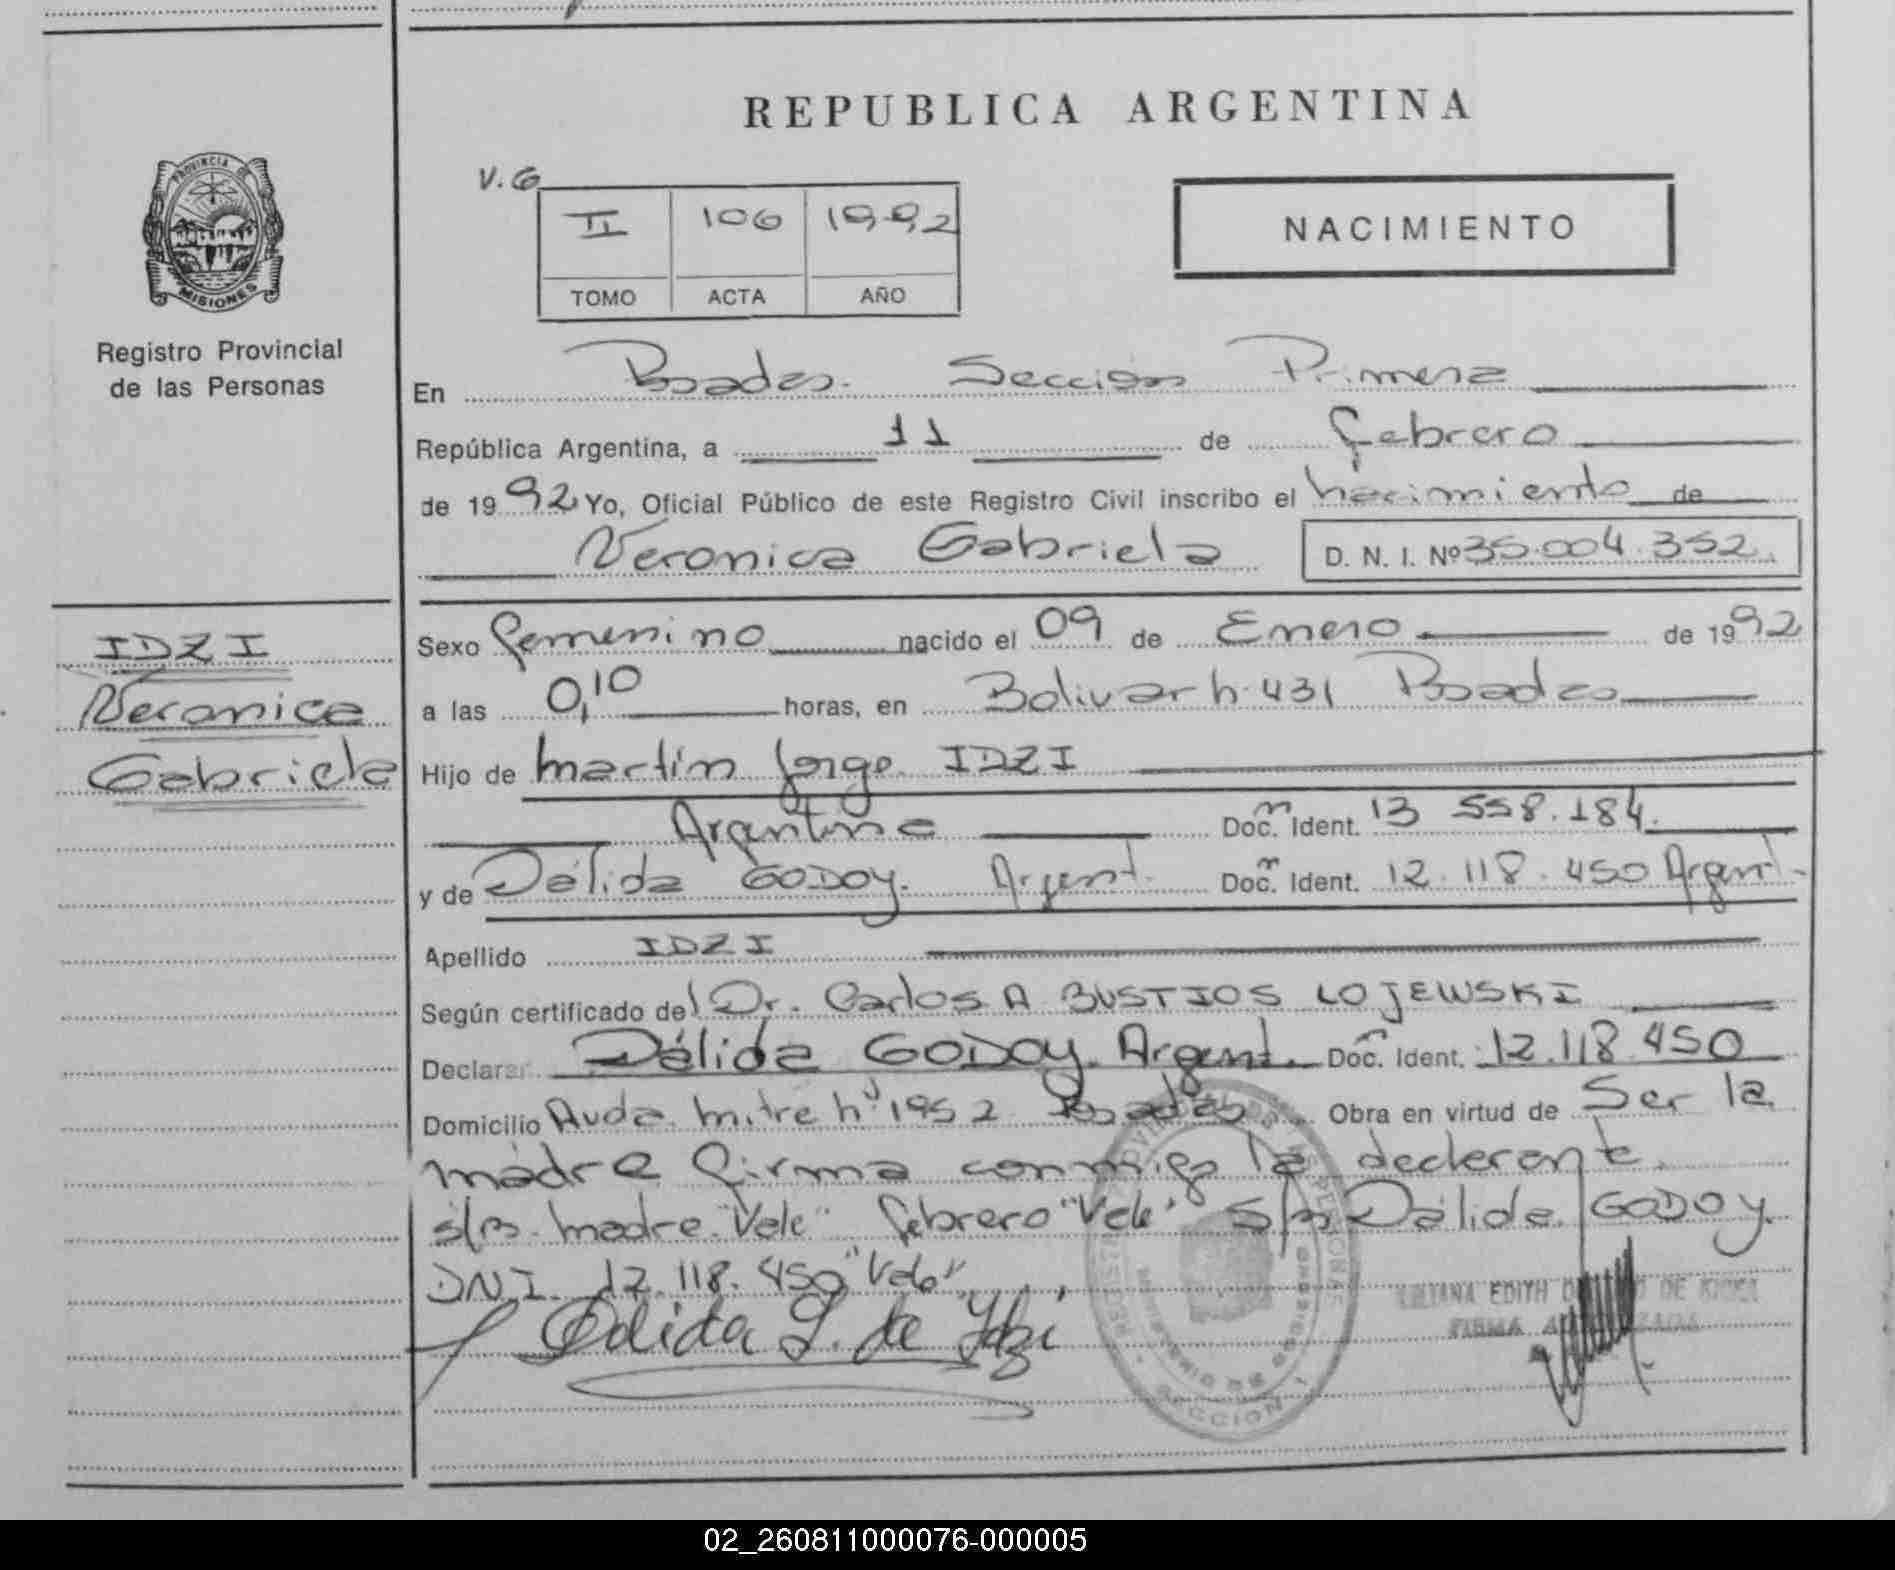 REPUBLICA ARGENTINA
PROVINCIA DE
MISIONES
Registro Provincial
de las Personas
V.G
II 106 1992
TOMO ACTA AÑO
NACIMIENTO
En Posadas. Sección Primera
República Argentina, a 11 de febrero
de 1992 Yo, Oficial Público de este Registro Civil inscribo el nacimiento de
Veronica Gabriela D. N. I. Nº 35.004.352
IDZI
Veronica
Gabriela
Sexo femenino nacido el 09 de Enero de 1992
a las 0,10 horas, en Bolivar n. 431 Posadas
Hijo de Martín Jorge IDZI
Argentino Doc. Ident. 13 558.184.
y de Délida GODOY. Argent. Doc. Ident. 12.118.450 Argent.
Apellido IDZI
Según certificado del Dr. Carlos A BUSTIOS LOJEWSKI
Declarar Délida GODOY. Argent. Doc. Ident. 12.118.450
Domicilio Avda. Mitre nº 1952 Posadas Obra en virtud de Ser la
madre firma conmigo la declarante.
s/r. madre. "Vale" febrero "Vale" s/r Délida GODOY
DNI. 12.118.450 "Vale"
Délida G. de Idzi
LILIANA EDITH DE
FIRMA
SECCION 1
02_260811000076-000005